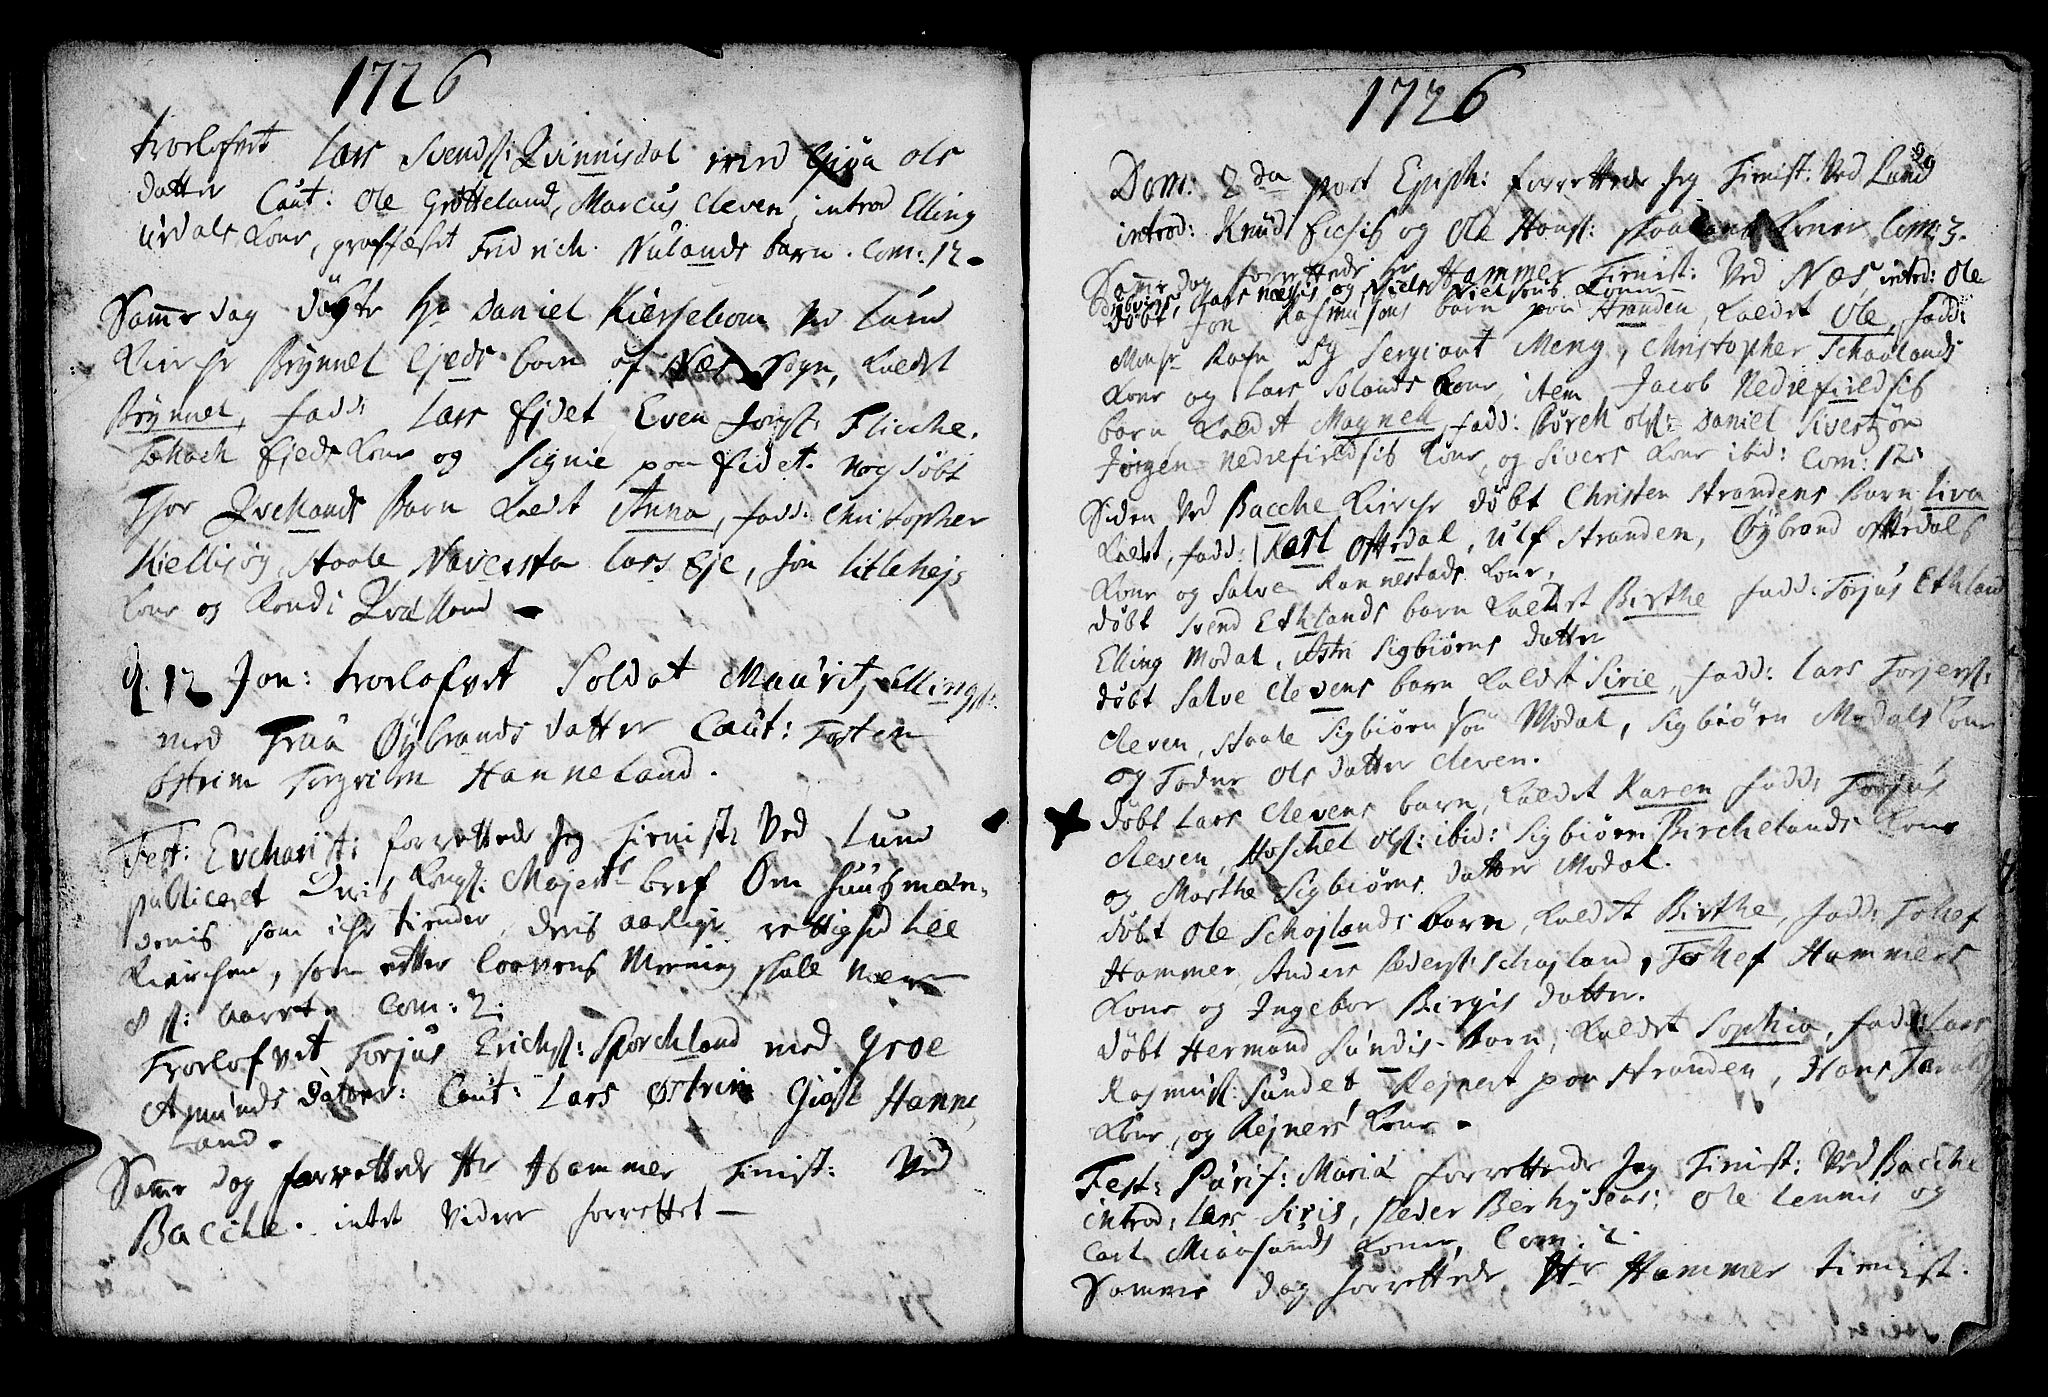 1726
trolofvet Lars Svends: Qvinnisdal med Giøa Ols
datter Caut: Ole Grøtteland, Marcus Cleven, introd Elling
Urdals Kone, graffæstet Fridrich Nulands barn. Com: 12.
Samme dag døbte Hr Daniel Kierrebom Ved Lund
Kirche Brynnel Ejeds barn af Næs Sogn, kaldet
Brynnel, fadd: Lars Ejdet Even Jonss: Flicche.
Tollach Ejeds Kone og Signie paa Eidet. nog døbt
Thor Qvellands Barn kaldt Anna, fadd: Christopher
Kiellisøg, Staale Naversta Lars Eje, Jon Litlehejs
Kone og Rondi Qvelland
d. 12 Jan: trolofvet Soldat Mauritz Ellings:
med Truå Øybrands datter Caut: Tosten
Østrim Torgrim Hanneland.
Fest: Evcharist: forrettede Jeg Tienist: Ved Lund
publiceret Dris Kongl: Majests bref Om huusmæn-
denis som iche tiender, deris aarlige rettighed till
Kirchen, som efter Loevens Mening skall være
8 s: aaret. Com: 2:
Trolofvet Torjus Erichs: Sporchland med Groe
Amunds datter: Caut: Lars Østrim Giøst Hanne
land.
Samme dag forrettede Hr Hammer Tinist: Ved
Bacche. intet videre forrettet
1726
99
Dom: 2da post Epiph: forrettede Jeg Tienist: Ved Lund
introd: Knud Eiesis og Ole Hans: Koner Com: 3.
Samme dag forrettede Hr Hammer Tienist: Ved Næs, introd: Ole
Lars næsis og Niels Nielsens Koner
døbt Jon Rasmusøns barn paa Stranden, kaldet Ole, fadd:
Monsr Rafn og Sergiant Meng, Christopher Schaalands
Kone og Lars Solands Kone, item Jacob Nedrefiedsis
barn kaldet Magnell, fadd: Børch Ols: Daniel Sivertsøn
Jørgen Nedrefiedsis Kone, og Sivers Kone ibid: Com: 12:
Siden Ved Bacche Kirche døbt Christen Strandens Barn Liva
kaldet, fadd: Karl Oftedal, Ulf Stranden, Øybrand Oftedals
Kone og Salve Rannestads Kone,
døbt Svend Ethlands barn kaldet Birthe fadd: Torjus Ethland
Elling Modal, Astri Sigbiørns datter
døbt Salve Clevens barn kaldet Sirie, fadd: Lars Torjers:
Cleven, Staale Sigbiørnsøn Modal, Sigbiørn Modals Kone
og Todne Ols datter Cleven.
døbt Lars Clevens barn, kaldet Karen fadd: Torjus
Cleven, Aschel Ols: ibid: Sigbiørn Birchelands Kone
og Marthe Sigbiørns datter Modal.
døbt Ole Schojlands barn, kaldet Birthe, fadd: Tollef
Hammer, Anders Peders: Schojland, Tollef Hammers
Kone og Ingebor Birgis datter.
døbt Hermand Sundis barn, kaldet Sophia, fadd: Lars
Rasmus: Sundet Rejnert paa Stranden, Hans Taralds
Kone, og Rejners Kone.
Fest: Purif: Mariæ forrettede Jeg Tienist: Ved Bacche
introd: Lars Siris, Peder Berhydens: Ole Lennis og
Carl Miaasunds Koner, Com: 2.
Samme dag forrettede Hr Hammer tienist.